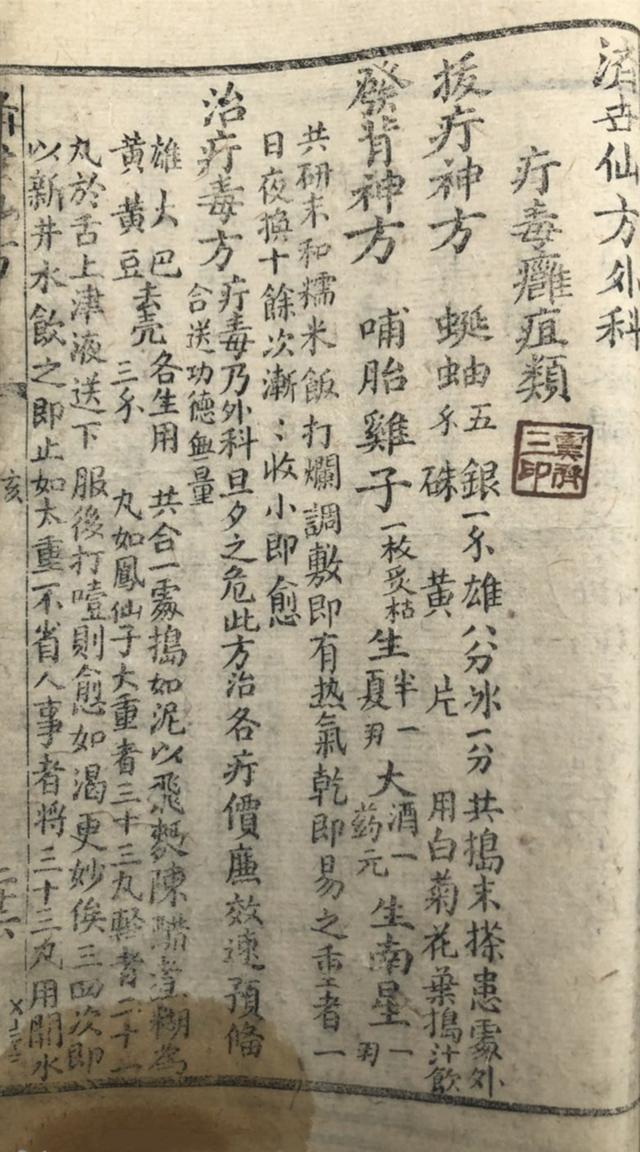 濟世仙方外科
疔毒癰疽類
拔疔神方 蜒蚰五 銀硃一 雄黃八分 冰片一分 共搗末搽患處外用白菊花葉搗汁飲
發背神方 哺胎雞子一枚炙枯 生半夏一 大酒药一元 生南星一
共研末和糯米飯打爛調敷即有热氣乾即易之重者一
日夜換十餘次漸:收小即愈
治疔毒方 疔毒乃外科旦夕之危此方治各疔價廉效速預俻
合送功德無量
雄黃 大黃 巴豆去壳 各生用三 共合一處搗如泥以飛麪陳醋煮糊為
丸如鳳仙子大重者三十三丸輕者二十一
丸於舌上津液送下服後打噎則愈如渴更妙俟三四次即
以新井水飲之即止如太重不省人事者將三十三丸用開水